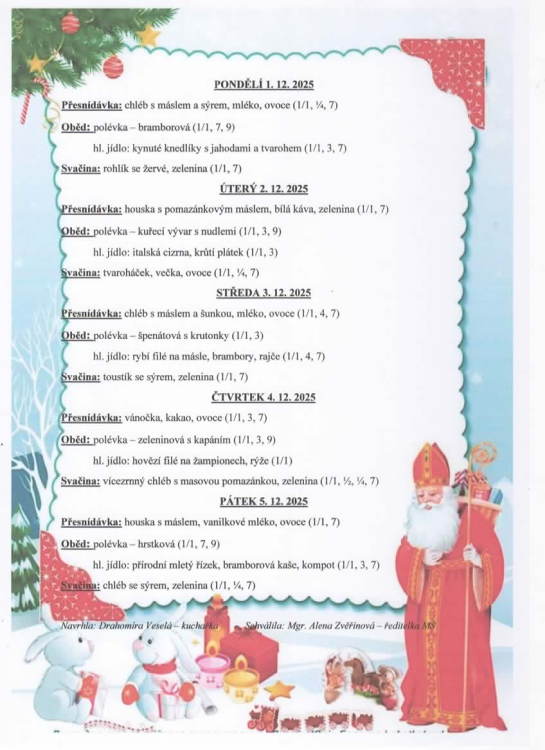 PONDĚLÍ 1. 12. 2025
Přesnídávka: chléb s máslem a sýrem, mléko, ovoce (1/1, ¼, 7)
Oběd: polévka – bramborová (1/1, 7, 9)
hl. jídlo: kynuté knedlíky s jahodami a tvarohem (1/1, 3, 7)
Svačina: rohlík se žervé, zelenina (1/1, 7)
ÚTERÝ 2. 12. 2025
Přesnídávka: houska s pomazánkovým máslem, bílá káva, zelenina (1/1, 7)
Oběd: polévka – kuřecí vývar s nudlemi (1/1, 3, 9)
hl. jídlo: italská cizrna, krůtí plátek (1/1, 3)
Svačina: tvaroháček, večka, ovoce (1/1, ¼, 7)
STŘEDA 3. 12. 2025
Přesnídávka: chléb s máslem a šunkou, mléko, ovoce (1/1, 4, 7)
Oběd: polévka – špenátová s krutonky (1/1, 3)
hl. jídlo: rybí filé na másle, brambory, rajče (1/1, 4, 7)
Svačina: toustík se sýrem, zelenina (1/1, 7)
ČTVRTEK 4. 12. 2025
Přesnídávka: vánočka, kakao, ovoce (1/1, 3, 7)
Oběd: polévka – zeleninová s kapáním (1/1, 3, 9)
hl. jídlo: hovězí filé na žampionech, rýže (1/1)
Svačina: vícezrnný chléb s masovou pomazánkou, zelenina (1/1, ½, ¼, 7)
PÁTEK 5. 12. 2025
Přesnídávka: houska s máslem, vanilkové mléko, ovoce (1/1, 7)
Oběd: polévka – hrstková (1/1, 7, 9)
hl. jídlo: přírodní mletý řízek, bramborová kaše, kompot (1/1, 3, 7)
Svačina: chléb se sýrem, zelenina (1/1, ¼, 7)
Navrhla: Drahomíra Veselá – kuchařka Schválila: Mgr. Alena Zvěřinová – ředitelka MŠ